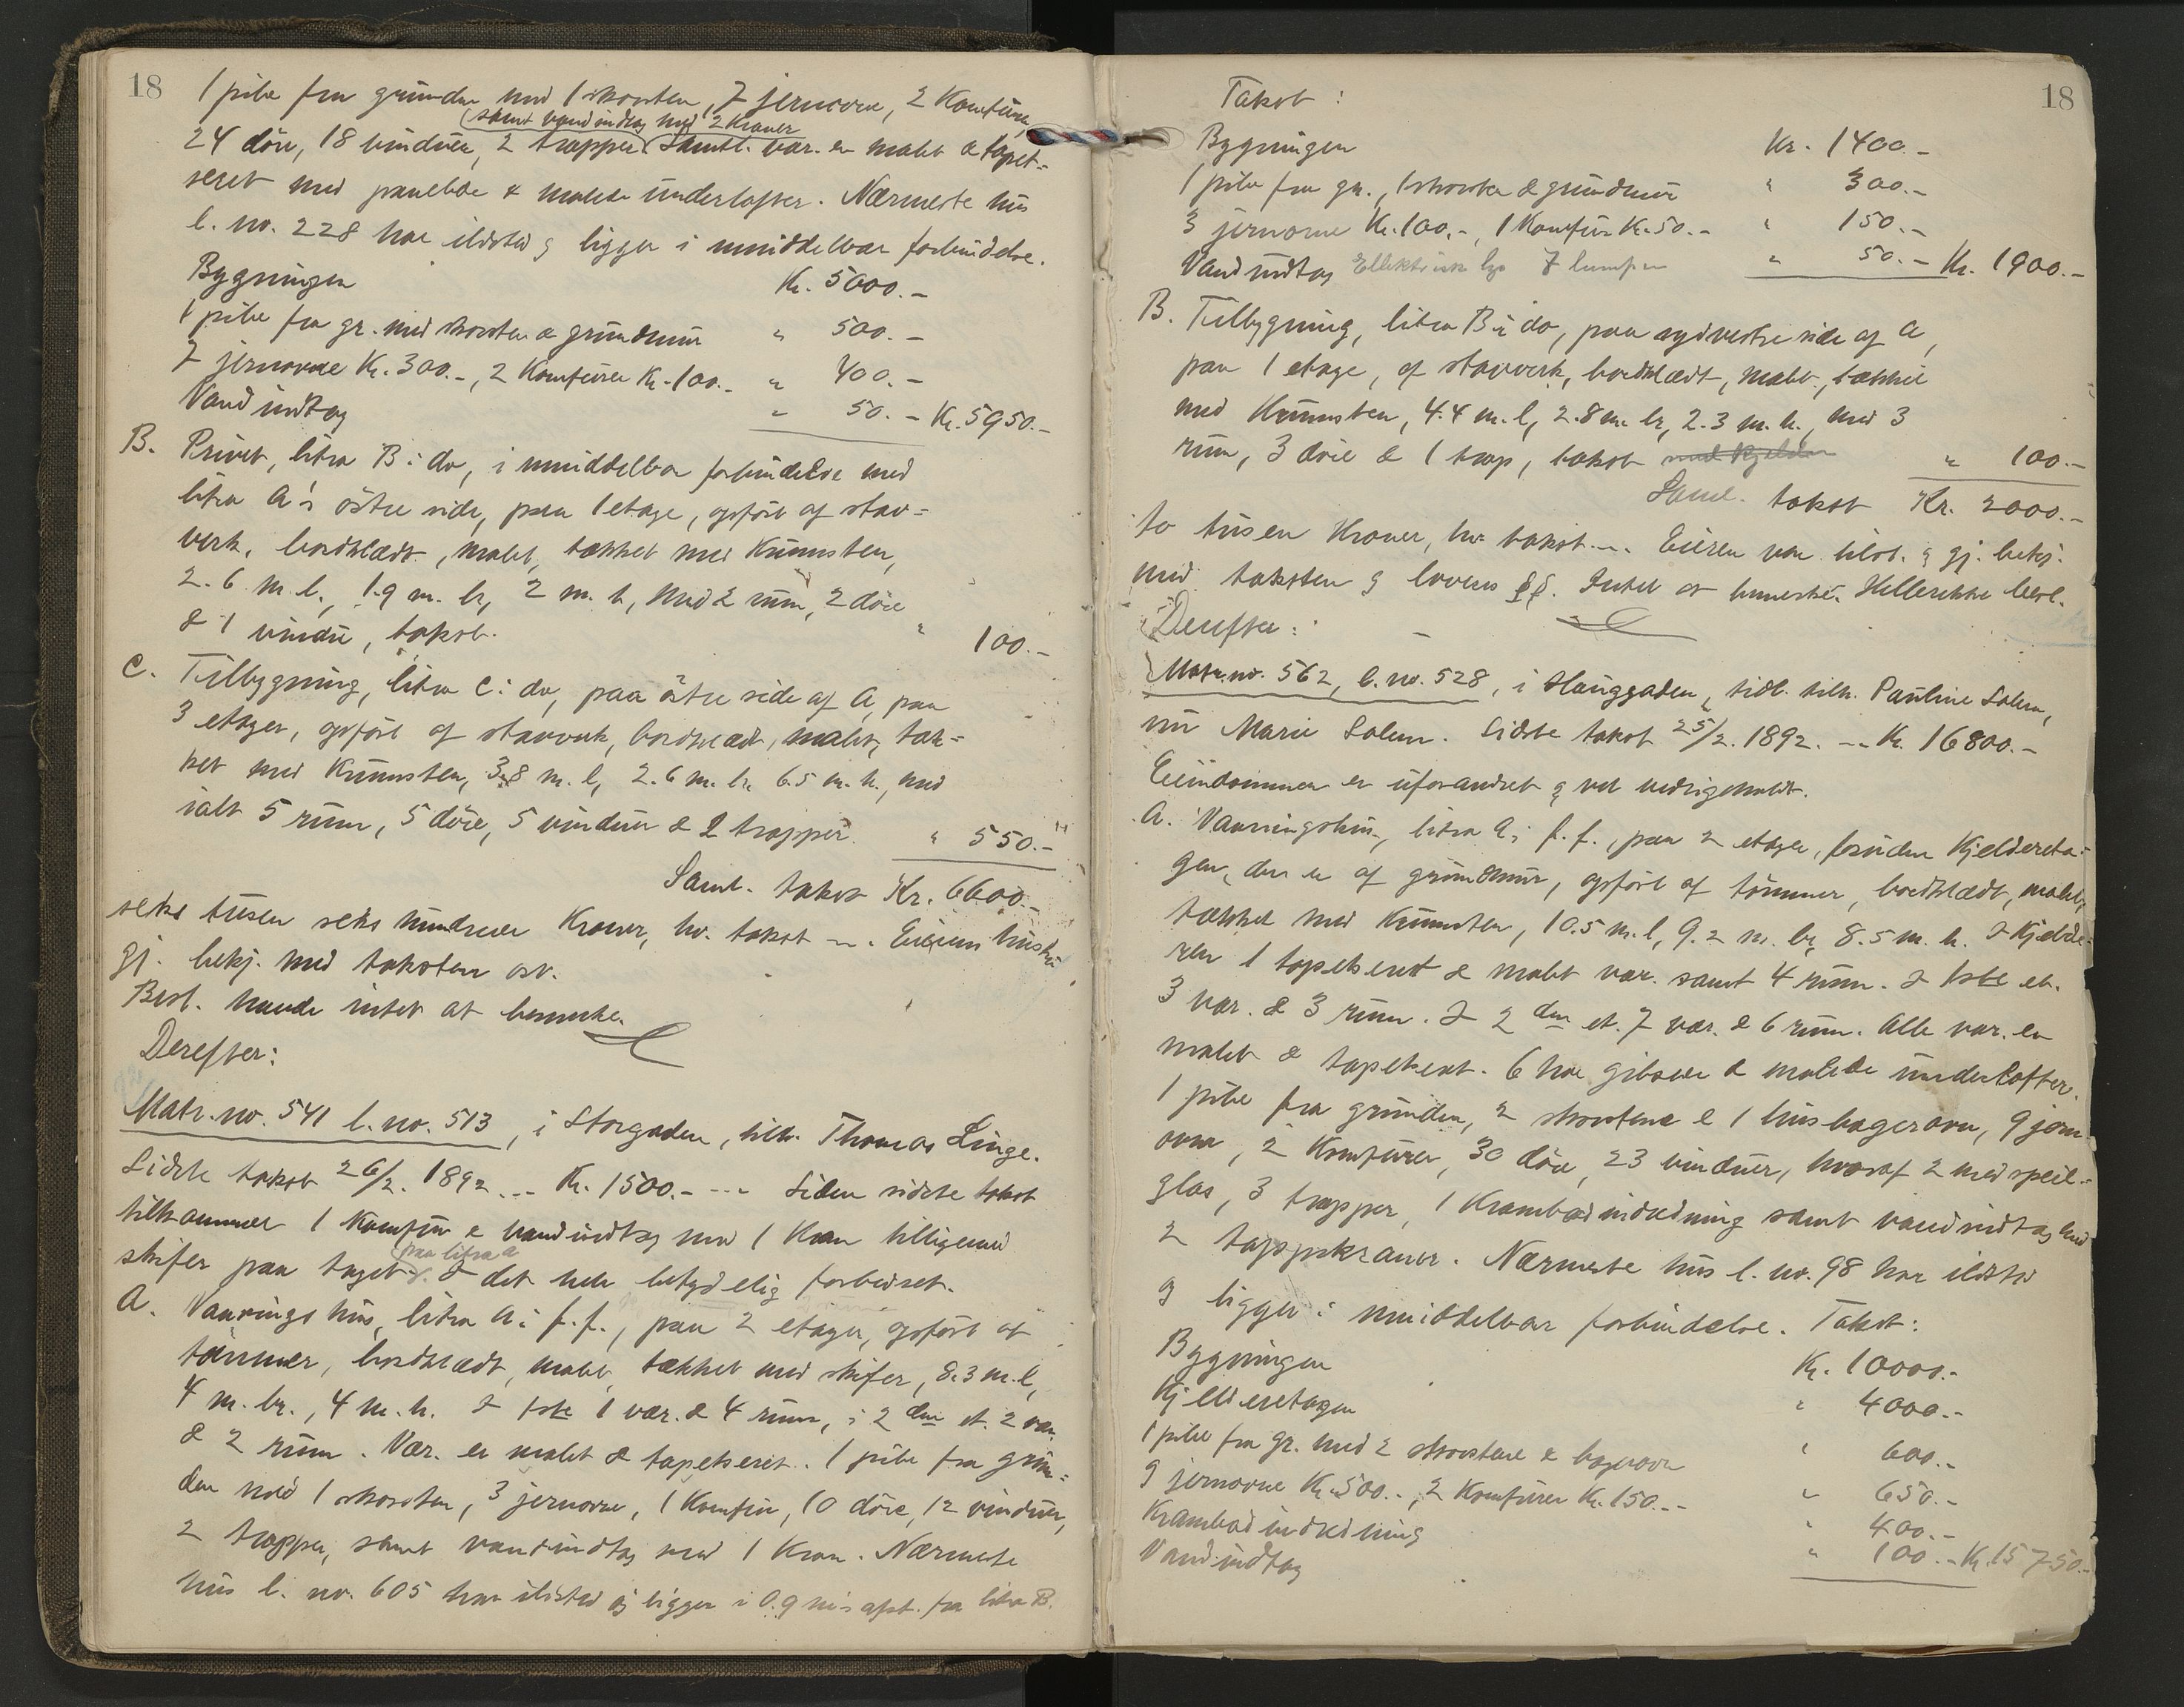 18
1 pibe fra grunden med 1 skorsten, 7 jernovne, 2 Komfürer,
(samt vandindtag med 2 kraner
24 döre, 18 vinduer, 2 trapper (Samtl. vær. er malet & tapet-
seret med panelede & malede underlofter. Nærmeste hus
l. no. 228 har ildsted og ligger i umiddelbar forbindelse.
Bygningen Kr. 5000.-
1 pibe fra gr. med skorsten & grundmur " 500.-
7 jernovne Kr. 300.-, 2 Komfürer Kr. 100.- " 400.-
Vandindtag " 50.- Kr. 5950.-
B. Privet, litra B i do, i umiddelbar forbindelse med
litra A's östre side, paa 1 etage, opfört af stav-
verk, bordklædt, malet, tækket med Krumsten,
2.6 m. l., 1.9 m. br, 2 m. h, med 2 rum, 2 döre
& 1 vindu, takst. " 100.-
C. Tilbygning, litra C i do, paa östre side af A, paa
3 etager, opfört af stavverk, bordklædt, malet, tæk-
ket med Krumsten, 3.8 m. l, 2.6 m. br. 6.5 m. h., med
ialt 5 rum, 5 döre, 5 vinduer & 2 trapper. " 550.-
Saml. takst Kr. 6600.-
seks tusen seks hundrede Kroner, hv. takst -. Eierens hustru
gj. bekj. med taksten osv.
Best. havde intet at bemerke.
Derefter:
Matr. no. 541 l. no. 513, i Storgaden, tilh. Thomas Linge.
Sidste takst 26/2. 1892 -- Kr. 1500.- -- Siden sidste takst
tilkommer 1 Komfür & vandindtag med 1 Kran tilligemed
paa litra a
skifer paa taget. & det hele betydelig forbedret.
A. Vaaningshus, litra A i f. f., paa 2 etager, opfört af
tömmer, bordklædt, malet, tækket med skifer, 8.3 m. l,
4 m. br., 4 m. h. I 1ste 1 vær. & 4 rum, i 2den et. 2 vær.
& 2 rum. Vær. er malet & tapetseret. 1 pibe fra grun-
den med 1 skorsten, 3 jernovne, 1 Komfür, 10 döre, 12 vinduer,
2 trapper, samt vandindtag med 1 Kran. Nærmeste
hus l. no. 605 har ildsted og ligger i 0.9 m.s afst. fra litra B.
18
Takst:
Bygningen Kr. 1400.-
1 pibe fra gr., 1 skorsten & grundmur " 300.-
3 jernovne Kr. 100.-, 1 Komfür Kr. 50.- " 150.-
Vandindtag Ellektrisk lys 7 lamper " 50.- Kr. 1900.-
B. Tilbygning, litra B i do, paa sydvestre side af A,
paa 1 etage, af stavverk, bordklædt, malet, tækket
med Krumsten, 4.4 m. l, 2.8 m. br, 2.3 m. h., med 3
rum, 3 döre & 1 trap, takst med kjelder " 100.-
Saml. takst Kr. 2000.-
to tusen Kroner, hv. takst -. Eieren var tilst. & gj. bekj.
med taksten & lovens §§. Intet at bemerke. Hellerikke best.
Derefter:
Matr. no. 562, l. no. 528, i Hauggaden, tidl. tilh. Pauline Solem,
nu Marie Solem. Sidste takst 25/2. 1892. -- Kr. 16800.-
Eiendommen er uforandret & vel vedligeholdt.
A. Vaaningshus, litra A i f. f., paa 2 etager, foruden Kjeldereta-
gen, der er af grundmur, opfört af tömmer, bordklædt, malet,
tækket med Krumsten, 10.5 m. l, 9.2 m. br, 8.5 m. h. I Kjelde-
ren 1 tapetseret & malet vær. samt 4 rum. I 1ste et.
3 vær. & 3 rum. I 2den et. 7 vær. & 6 rum. Alle vær. er
malet & tapetseret. 6 har gibsede & malede underlofter.
1 pibe fra grunden, 2 skorstene & 1 husbagerovn, 9 jern-
ovne, 2 Komfürer, 30 döre, 23 vinduer, hvoraf 2 med speil-
glas, 3 trapper, 1 Krambodindredning samt vandindtag med
2 tappekraner. Nærmeste hus l. no. 98 har ildsted
og ligger i umiddelbar forbindelse. Takst:
Bygningen Kr. 10000.-
Kjelderetagen " 4000.-
1 pibe fra gr. med 2 skorstene & bagerovn " 600.-
9 jernovne Kr. 500.-, 2 Komfürer Kr. 150.- " 650.-
Krambodindredning " 400.-
Vandindtag " 100.- Kr. 15750.-